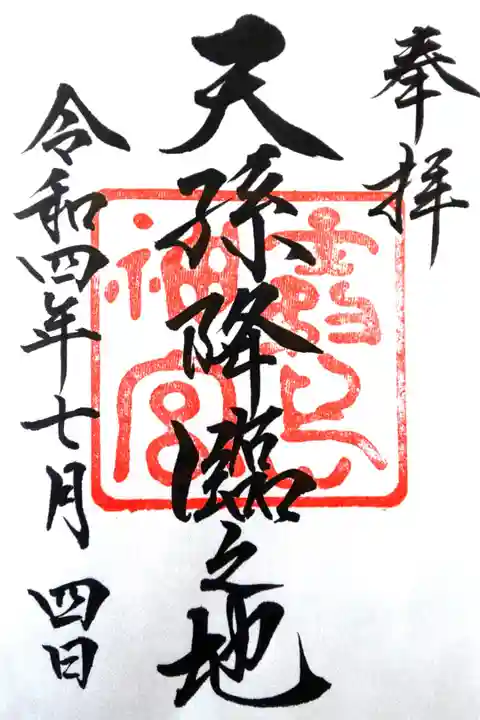 奉拝
天孫降臨之地
令和四年七月四日